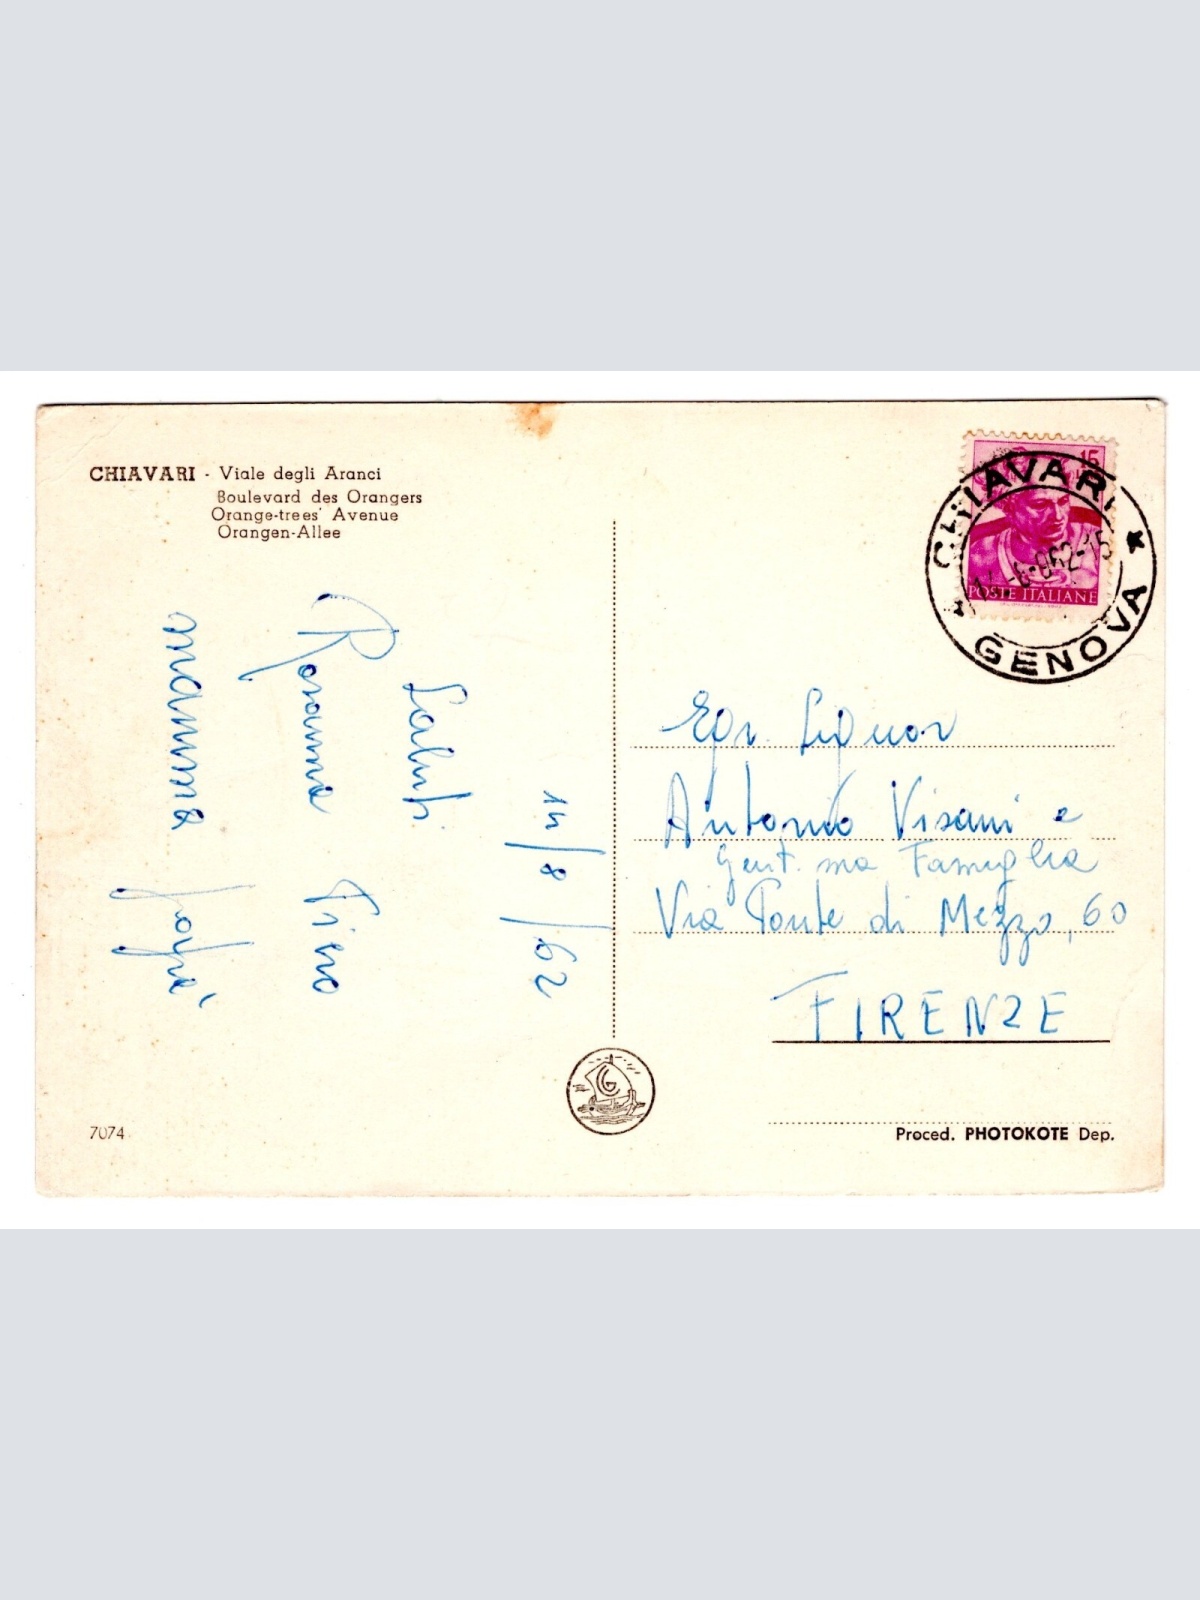 CHIAVARI - Viale degli Aranci
Boulevard des Orangers
Orange-trees' Avenue
Orangen-Allee
15
POSTE ITALIANE
CHIAVARI
GENOVA
14/8/62
Saluti
Rosanna Piero
mamma papà
Egr. Signor
Antonio Visani e
Gent.ma Famiglia
Via Ponte di Mezzo, 60
FIRENZE
G
7074
Proced. PHOTOKOTE Dep.